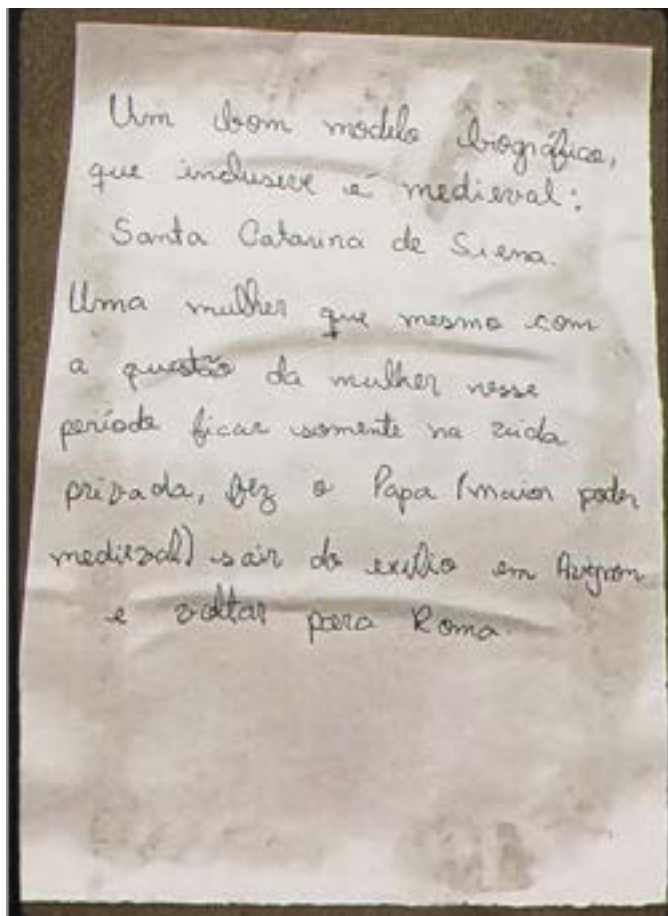 Um bom modelo biográfico,
que inclusive é medieval:
Santa Catarina de Siena.
Uma mulher que mesmo com
a questão da mulher nesse
período ficar somente na vida
privada, fez o Papa (maior poder
medieval) sair do exílio em Avignon
e voltar para Roma.